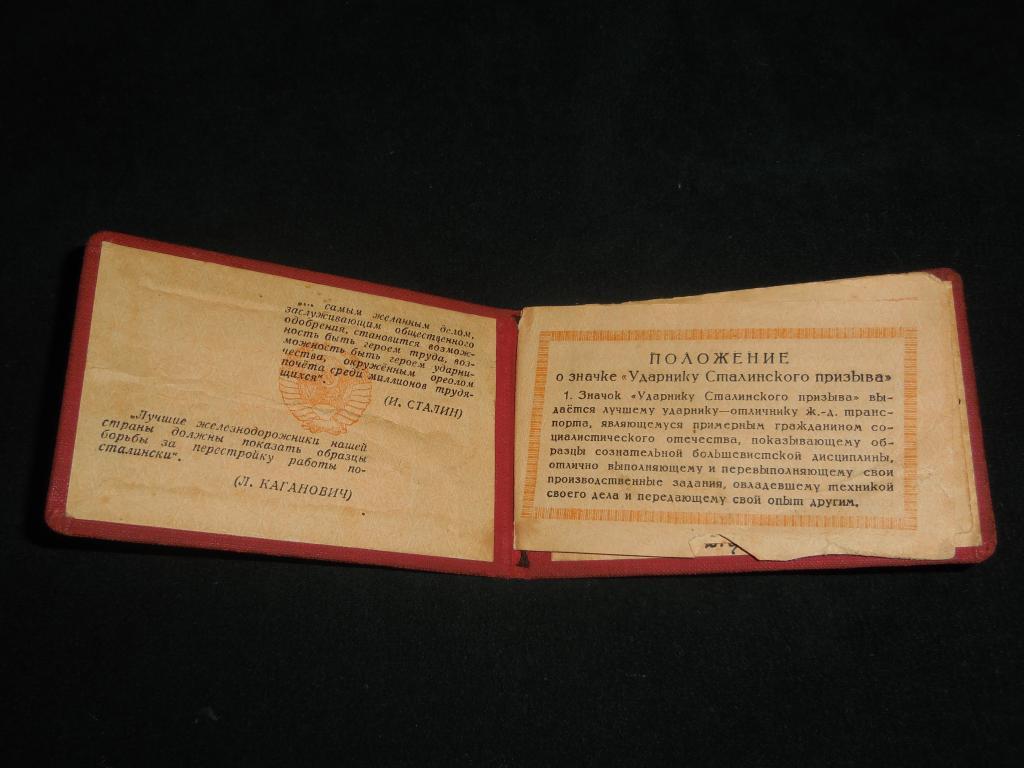 самым желанным делом,
заслуживающим общественного
одобрения, становится возмож-
ность быть героем труда, воз-
можность быть героем ударни-
чества, окружённым ореолом
почёта среди миллионов трудя-
щихся".
(И. СТАЛИН)
„Лучшие железнодорожники нашей
страны должны показать образцы
борьбы за перестройку работы по-
сталински".
(Л. КАГАНОВИЧ)
ПОЛОЖЕНИЕ
о значке «Ударнику Сталинского призыва»
1. Значок «Ударнику Сталинского призыва» вы-
даётся лучшему ударнику—отличнику ж.-д. транс-
порта, являющемуся примерным гражданином со-
циалистического отечества, показывающему об-
разцы сознательной большевистской дисциплины,
отлично выполняющему и перевыполняющему свои
производственные задания, овладевшему техникой
своего дела и передающему свой опыт другим.